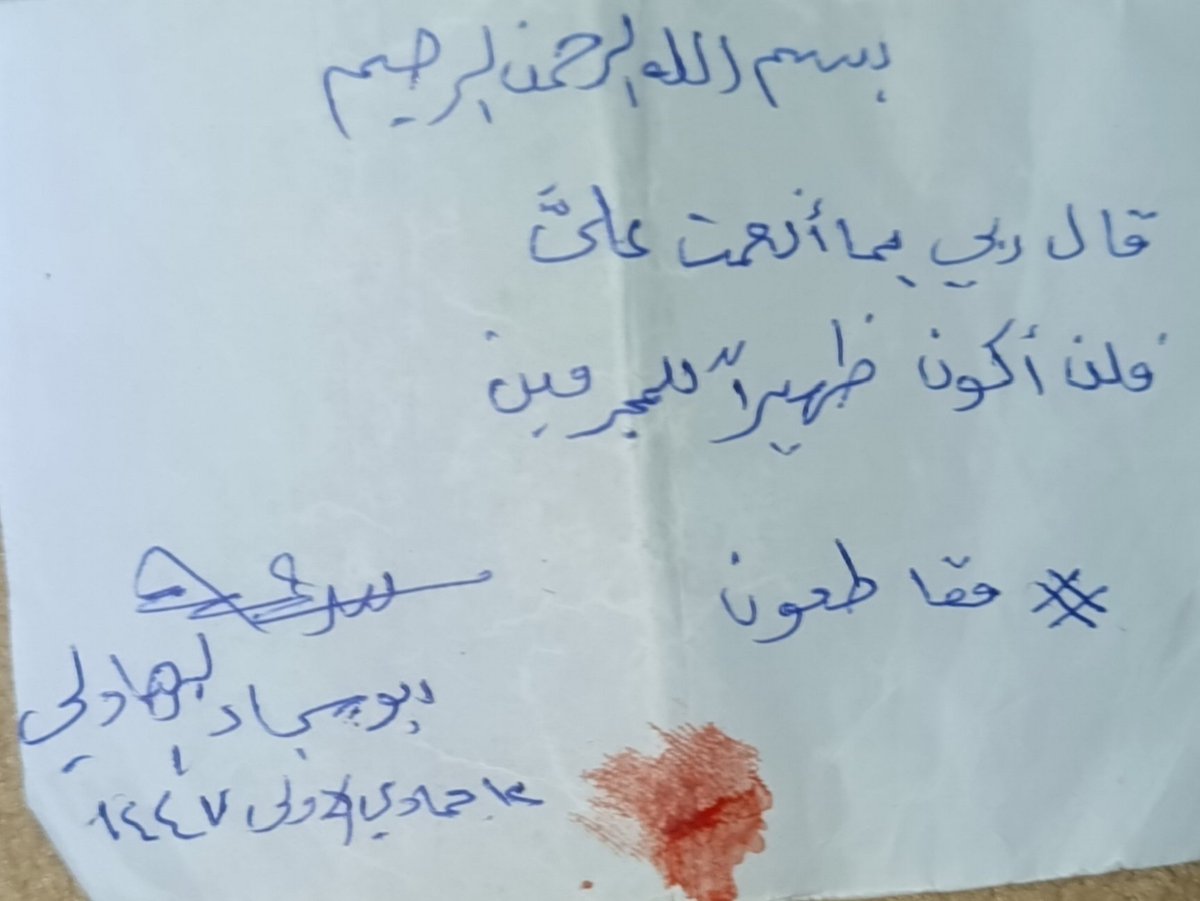 بسم الله الرحمن الرحيم
قال ربي بما أنعمت عليَّ
فلن أكون ظهيراً للمجرمين
# مقاطعون
بهادلي
جمادي الاولى ١٤٤٧